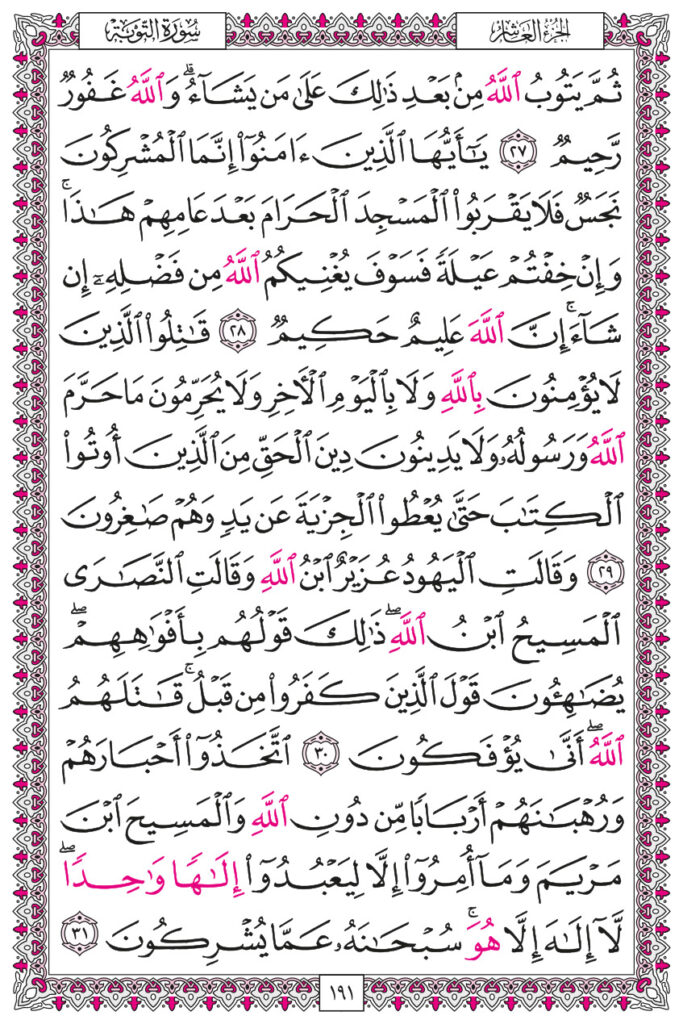 الجزء العاشر
سورة التوبة
ثُمَّ يَتُوبُ ٱللَّهُ مِنۢ بَعْدِ ذَٰلِكَ عَلَىٰ مَن يَشَآءُۗ وَٱللَّهُ غَفُورٌ
رَّحِيمٌ ٢٧ يَٰٓأَيُّهَا ٱلَّذِينَ ءَامَنُوٓا۟ إِنَّمَا ٱلْمُشْرِكُونَ
نَجَسٌ فَلَا يَقْرَبُوا۟ ٱلْمَسْجِدَ ٱلْحَرَامَ بَعْدَ عَامِهِمْ هَٰذَاۚ
وَإِنْ خِفْتُمْ عَيْلَةً فَسَوْفَ يُغْنِيكُمُ ٱللَّهُ مِن فَضْلِهِۦٓ إِن
شَآءَۚ إِنَّ ٱللَّهَ عَلِيمٌ حَكِيمٌ ٢٨ قَٰتِلُوا۟ ٱلَّذِينَ
لَا يُؤْمِنُونَ بِٱللَّهِ وَلَا بِٱلْيَوْمِ ٱلْءَاخِرِ وَلَا يُحَرِّمُونَ مَا حَرَّمَ
ٱللَّهُ وَرَسُولُهُۥ وَلَا يَدِينُونَ دِينَ ٱلْحَقِّ مِنَ ٱلَّذِينَ أُوتُوا۟
ٱلْكِتَٰبَ حَتَّىٰ يُعْطُوا۟ ٱلْجِزْيَةَ عَن يَدٍ وَهُمْ صَٰغِرُونَ
٢٩ وَقَالَتِ ٱلْيَهُودُ عُزَيْرٌ ٱبْنُ ٱللَّهِ وَقَالَتِ ٱلنَّصَٰرَى
ٱلْمَسِيحُ ٱبْنُ ٱللَّهِۖ ذَٰلِكَ قَوْلُهُم بِأَفْوَٰهِهِمْۖ
يُضَٰهِـُٔونَ قَوْلَ ٱلَّذِينَ كَفَرُوا۟ مِن قَبْلُۚ قَٰتَلَهُمُ
ٱللَّهُۖ أَنَّىٰ يُؤْفَكُونَ ٣٠ ٱتَّخَذُوٓا۟ أَحْبَارَهُمْ
وَرُهْبَٰنَهُمْ أَرْبَابًا مِّن دُونِ ٱللَّهِ وَٱلْمَسِيحَ ٱبْنَ
مَرْيَمَ وَمَآ أُمِرُوٓا۟ إِلَّا لِيَعْبُدُوٓا۟ إِلَٰهًا وَٰحِدًاۖ
لَّآ إِلَٰهَ إِلَّا هُوَۚ سُبْحَٰنَهُۥ عَمَّا يُشْرِكُونَ ٣١
١٩١